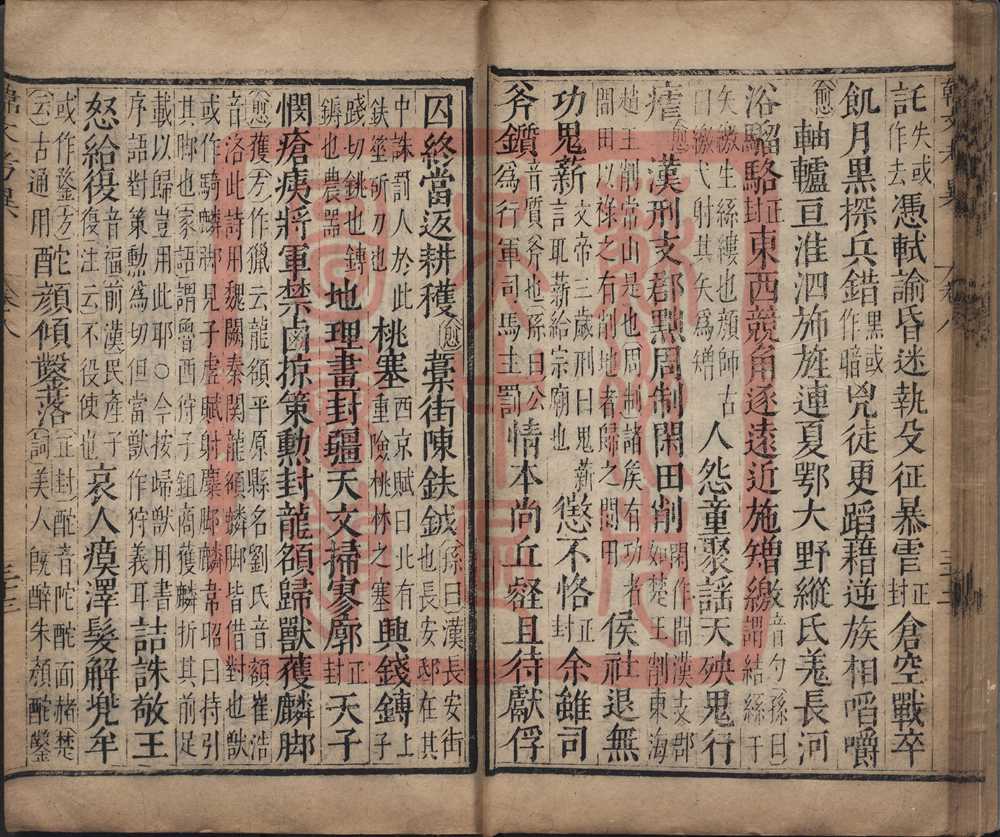 託失或作去憑軾諭昏迷執殳征暴雪正封倉空戰卒
飢月黑探兵錯黑或作暗兇徒更蹈藉逆族相啗嚼
愈軸轤亘淮泗斾旌連夏鄂大野縱氐羗長河
浴騮駱正封東西競角逐遠近施矰繳音勺孫曰謂結絲于
矢繳生絲縷也顏師古曰繳弋射其矢爲矰人怨童聚謡天殃鬼行
瘧愈漢刑支郡黥周制閑田削閑作間漢支郡如楚王削東海
趙王削常山是也周制諸矦有功者間田以祿之有削地者歸之間田矦社退無
功鬼薪文帝三歲刑曰鬼薪取薪給宗廟也懲不恪正封余雖司
斧鑕音質斧也孫曰公爲行軍司馬主罰情本尚丘壑且待獻俘
囚終當返耕穫愈藁街陳鈇鉞孫曰漢長安街也長安邸在其
中誅罰人於此鈇莝斫刀也桃塞西京賦曰北有重險桃林之塞興錢鎛上子
踐切銚也鎛鎛也農器地理畫封疆天文掃寥廓正封天子
憫瘡痍將軍禁鹵掠策勳封龍頟歸獸獲麟脚
愈獲方作獵云龍頟平原縣名劉氏音額崔浩音洛此詩用魏闕秦關龍頟麟脚皆借對也獸
或作騎麟脚見子虛賦射麋脚麟韋昭曰持引其脚也家語謂會西狩子鉏商獲麟折其前足
載以歸豈用此耶○今按歸獸用書序語對策勳爲切但當獸作狩義耳詰誅敬王
怒給復音福前漢民產子復注云不役使也哀人瘼澤髮解兠牟
或作鍪方云古通用酡顏傾鑿落正封酡音陀酡面赭楚詞美人旣醉朱顏酡鑿